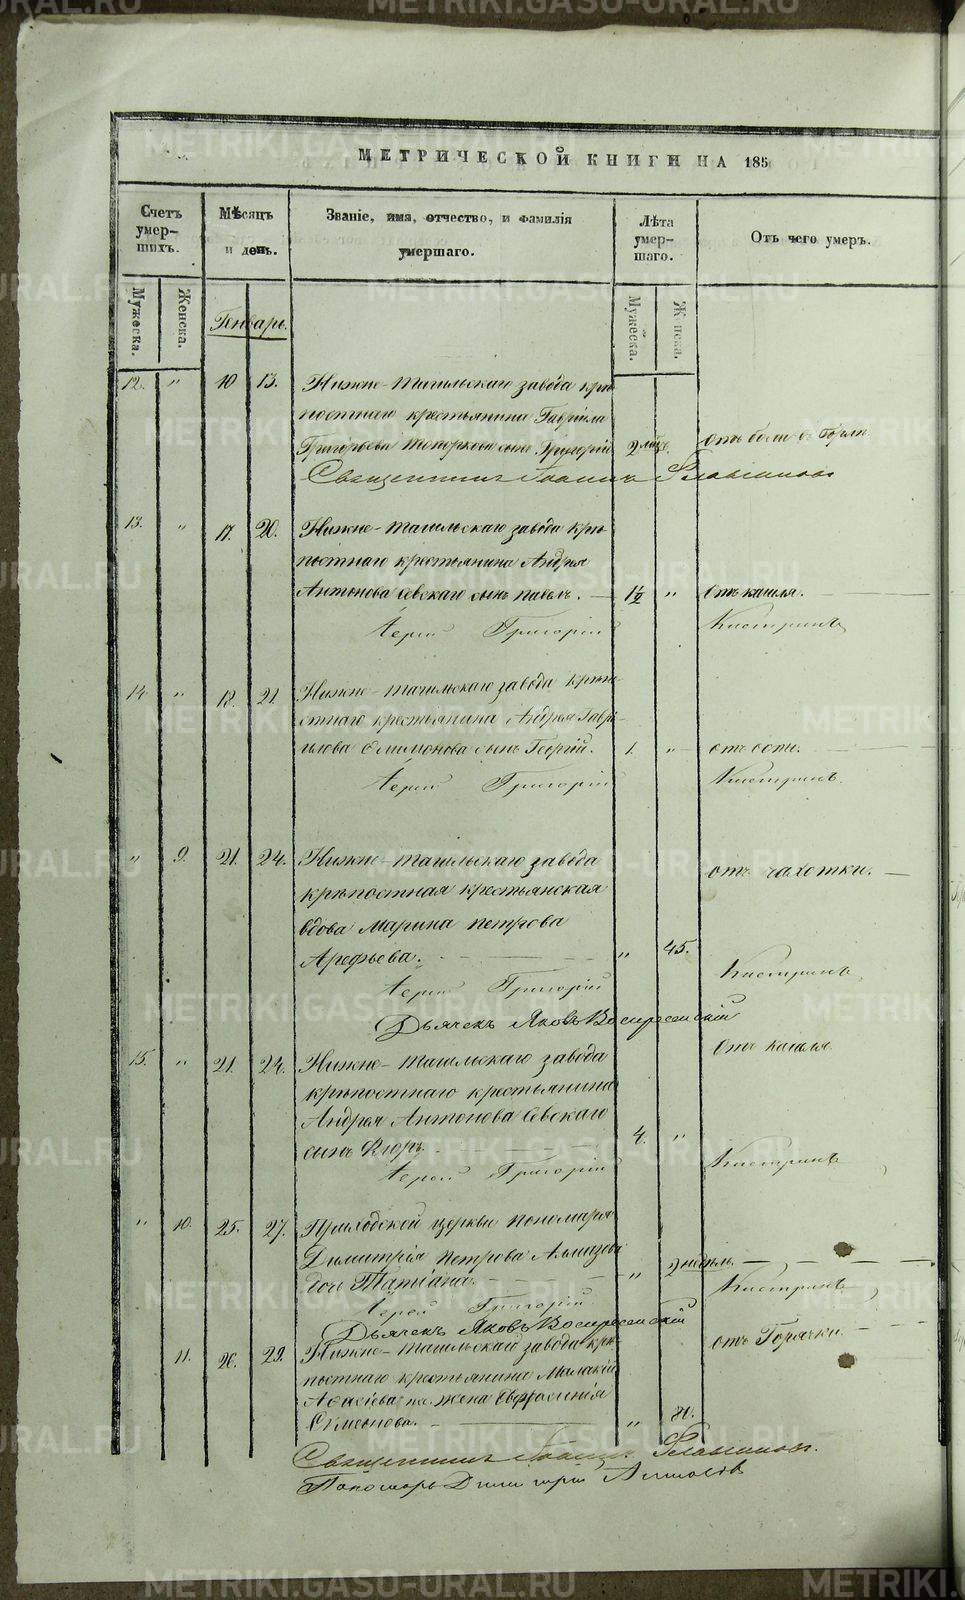 МЕТРИЧЕСКОЙ КНИГИ НА 185
Счетъ умер-шихъ.
Мѣсяцъ и день.
Званіе, имя, отчество, и фамилія умершаго.
Лѣта умер-шаго.
Отъ чего умеръ.
Мужеска.
Женска.
Январь.
Мужеска.
Женска.
12. " 10 13. Нижне-Тагильскаго завода крѣ-
постнаго крестьянина Гавріила
Григорьева Топоркова сынъ Григорій 2 мѣс. отъ боли въ горлѣ.
Священникъ Іоаннъ
13. " 17. 20. Нижне-Тагильскаго завода крѣ-
постнаго крестьянина Андрея
Антонова Севскаго сынъ Павелъ. 1½ " отъ кашля.
Іерей Григорій Кистринъ
14. " 18. 21. Нижне-Тагильскаго завода крѣпо-
стнаго крестьянина Андрея Гаврі-
илова Филимонова сынъ Георгій. 1. " отъ оспи.
Іерей Григорій Кистринъ.
" 9. 21. 24. Нижне-Тагильскаго завода
крѣпостная крестьянская
вдова Марина Петрова
Арефьева. " 45. отъ чахотки.
Іерей Григорій Кистринъ
Дьячекъ Яковъ Воскресенскій
15. " 21. 24. Нижне-Тагильскаго завода
крѣпостнаго крестьянина
Андрея Антонова Севскаго
сынъ Егоръ. 4. " Отъ кашля.
Іерей Григорій Кистринъ
" 10. 25. 27. Приходской церкви пономаря
Димитрія Петрова Алмазова
дочь Татіана. " 2 недѣль.
Іерей Григорій Кистринъ
Дьячекъ Яковъ Воскресенскій
11. 26. 29. Нижне-Тагильскаго завода крѣ-
постнаго крестьянина Малакіи
жена Евфросинія
Симеонова. " 80. отъ Горячки.
Священникъ Іоаннъ
Пономарь Димитрій Алмазовъ
METRIKI.GASO-URAL.RU